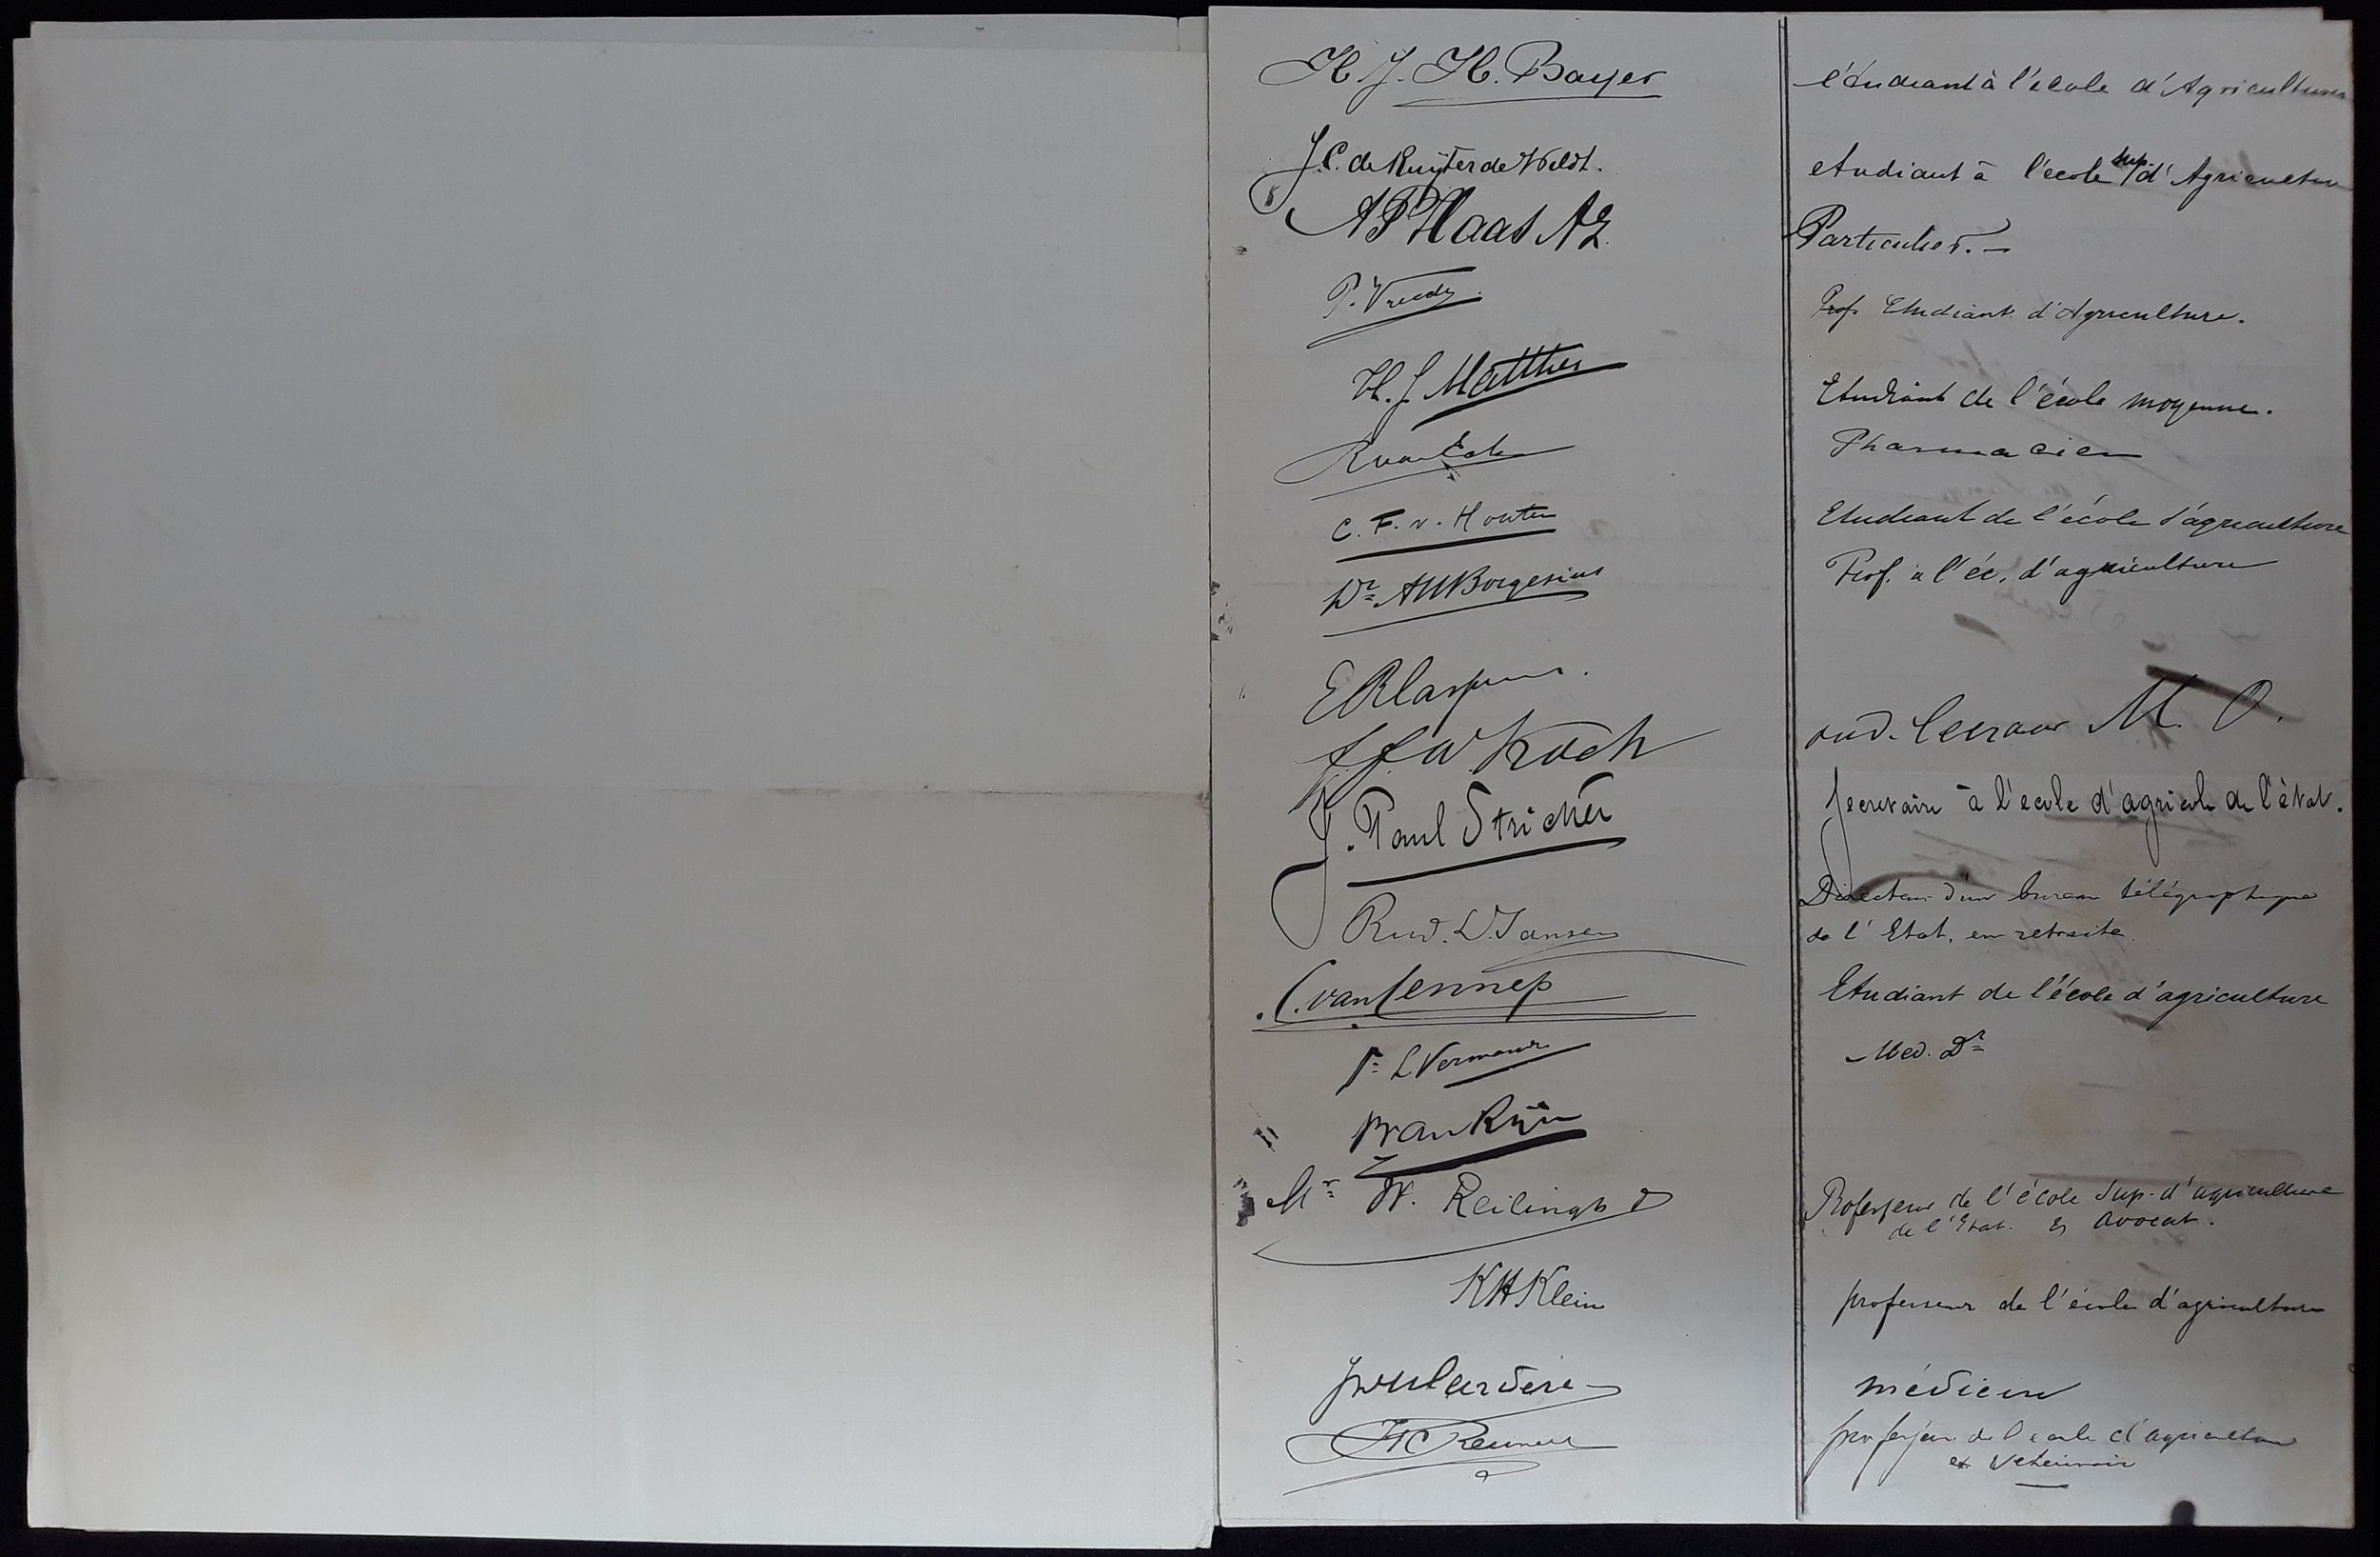 H. J. H. Bayer l'étudiant à l'école d'Agriculture
J. C. de Ruyter de Wildt. etudiant à l'école sup. d'Agriculture
A P Haas AZ. Particulier. —
P. Vreede. Prof. Etudiant d'Agriculture.
H. J. Matthes Etudiant de l'école moyenne.
R van Eck Pharmacien
C. F. v. Houten Etudiant de l'école d'agriculture
Dr. A H Borgesius Prof. à l'éc. d'agriculture
J. F. W. Koch oud-leeraar M. O.
J. Paul Stricker secretaire à l'ecole d'agricole de l'ètat.
Rud. D. Jansen Directeur d'un bureau télégraphique
de l'Etat, en retraite.
C. van Lennep Etudiant de l'école d'agriculture
L. Vermande Med. Dr
van Rijn
Mr. W. Reilingh Professeur de l'école Sup. d'agriculture
de l'Etat. et avocat.
K H Klein professeur de l'école d'agriculture
médecin
H C Reimers professeur de l'ecole d'agriculture
et Veterinair